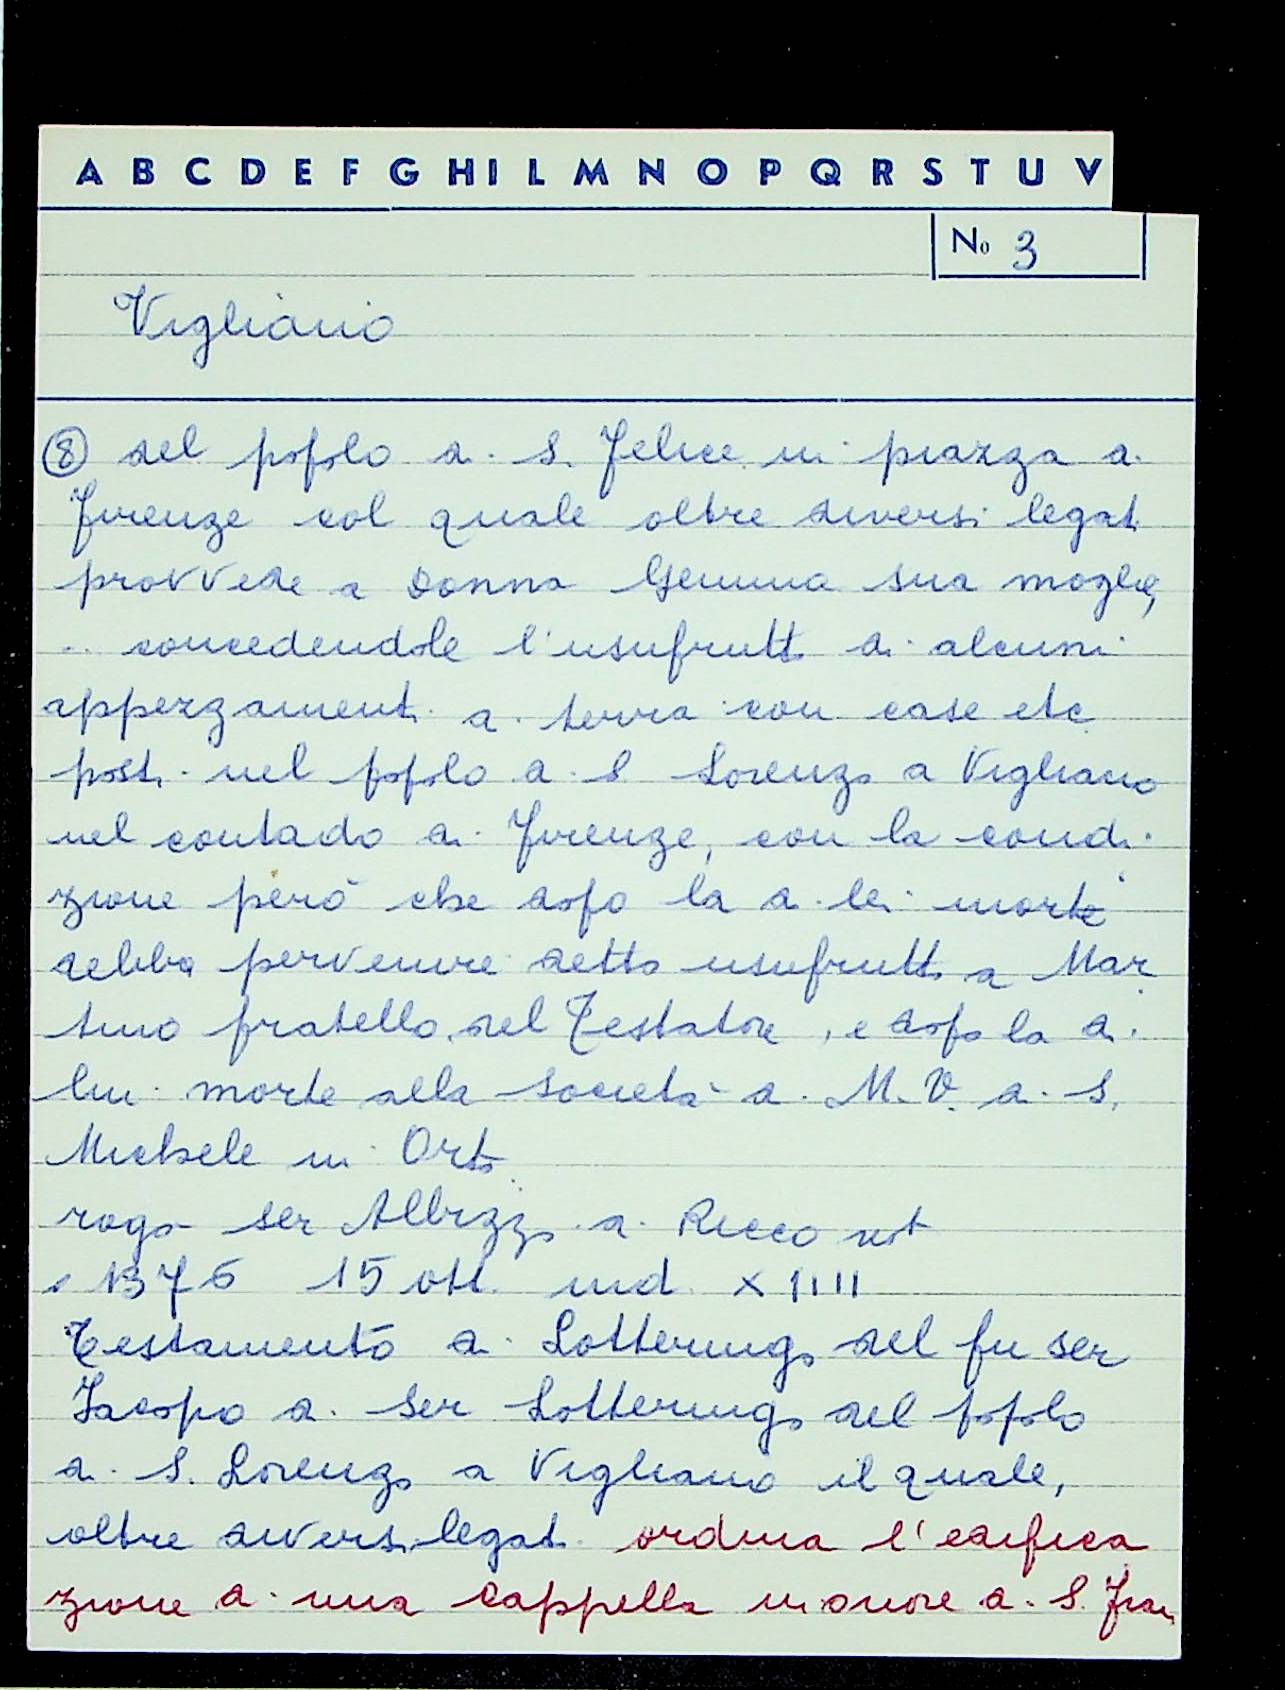 A B C D E F G H I L M N O P Q R S T U V
No 3
Vigliano
⑧ del popolo di S. Felice in piazza di
Firenze col quale oltre diversi legati
provvede a Donna Gemma sua moglie,
.. concedendole l'usufrutto di alcuni
appezzamenti di terra con case etc
posti nel popolo di S Lorenzo a Vigliano
nel contado di Firenze, con la condi-
zione però che dopo la di lei morte
debba pervenire detto usufrutto a Mar
tino fratello del Testatore, e dopo la di
lui morte alla società di M. V. di S.
Michele in Orto
rogò ser Albizzo di Ricco not
1376 15 ott. ind. XIIII
Testamento di Lotteringo del fu ser
Jacopo di ser Lotteringo del popolo
di S. Lorenzo a Vigliano il quale,
oltre diversi legati ordina l'edifica
zione di una cappella in onore di S. Fran